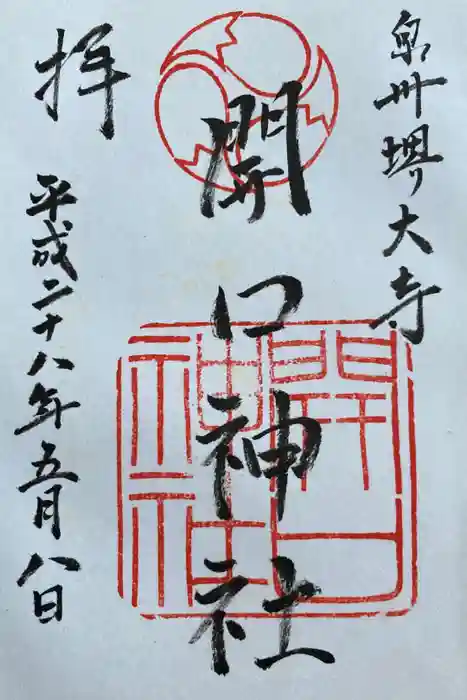 泉州堺大寺
開口神社
拝
平成二十八年五月八日
開口
神社